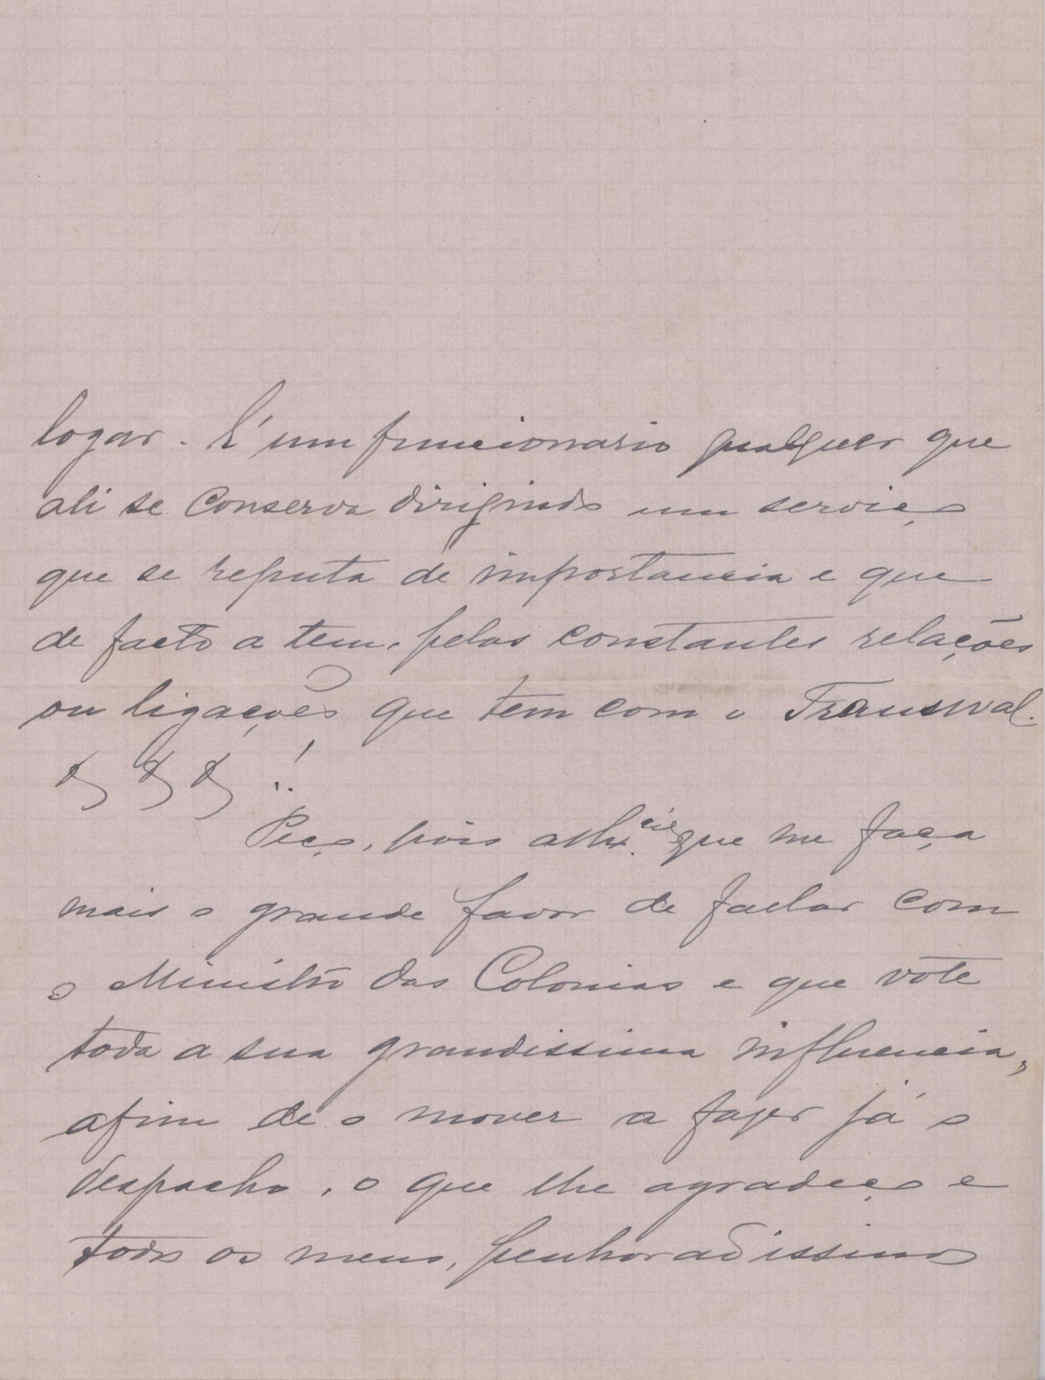 logar. É um funcionario qualquer que
ali se conserva dirigindo um serviço
que se reputa de importancia e que
de facto a tem, pelas constantes relações
ou ligações que tem com o Transwal.
!
Peço, pois que me faça
mais o grande favor de fallar com
o Ministro das Colonias e que vote
toda a sua grandissima influencia,
afim de o mover a fazer já o
despacho, o que lhe agradeço e
todos os meus, penhoradissimos